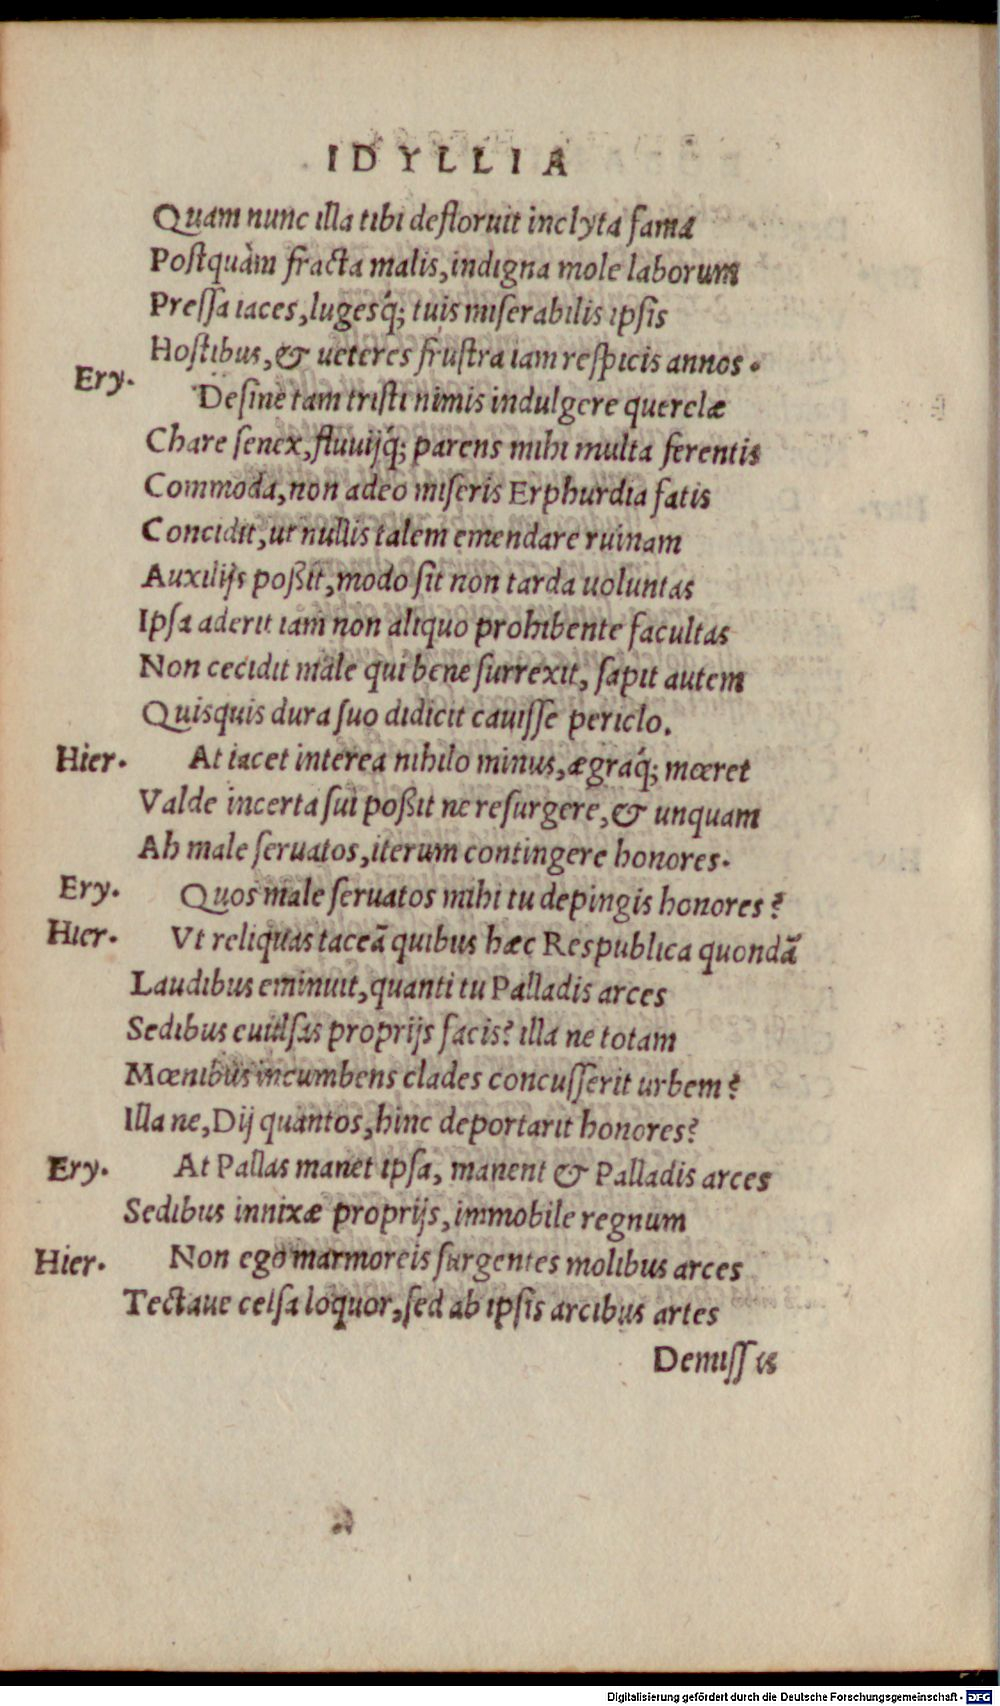 IDYLLIA
Quam nunc illa tibi defloruit inclyta fama
Postquàm fracta malis, indigna mole laborum
Pressa iaces, lugesq́; tuis miserabilis ipsis
Hostibus, & ueteres frustra iam respicis annos.
Ery. Desine tam tristi nimis indulgere querelæ
Chare senex, fluuijq́; parens mihi multa ferentis
Commoda, non adeo miseris Erphurdia fatis
Concidit, ut nullis talem emendare ruinam
Auxilijs poßit, modo sit non tarda uoluntas
Ipsa aderit iam non aliquo prohibente facultas
Non cecidit male qui bene surrexit, sapit autem
Quisquis dura suo didicit cauisse periclo.
Hier. At iacet interea nihilo minus, ægraq́; mœret
Valde incerta sui poßit ne resurgere, & unquam
Ah male seruatos, iterum contingere honores.
Ery. Quos male seruatos mihi tu depingis honores?
Hier. Vt reliquas taceã quibus hæc Respublica quondã
Laudibus eminuit, quanti tu Palladis arces
Sedibus euulsas proprijs facis? illa ne totam
Mœnibus incumbens clades concusserit urbem?
Illa ne, Dij quantos, hinc deportarit honores?
Ery. At Pallas manet ipsa, manent & Palladis arces
Sedibus innixæ proprijs, immobile regnum
Hier. Non ego marmoreis surgentes molibus arces
Tectaue celsa loquor, sed ab ipsis arcibus artes
Demissis
Digitalisierung gefördert durch die Deutsche Forschungsgemeinschaft - DFG